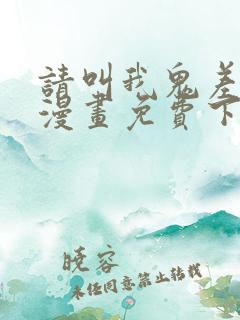 請叫我鬼差
漫畫免費下
曉容
未经同意禁止转载